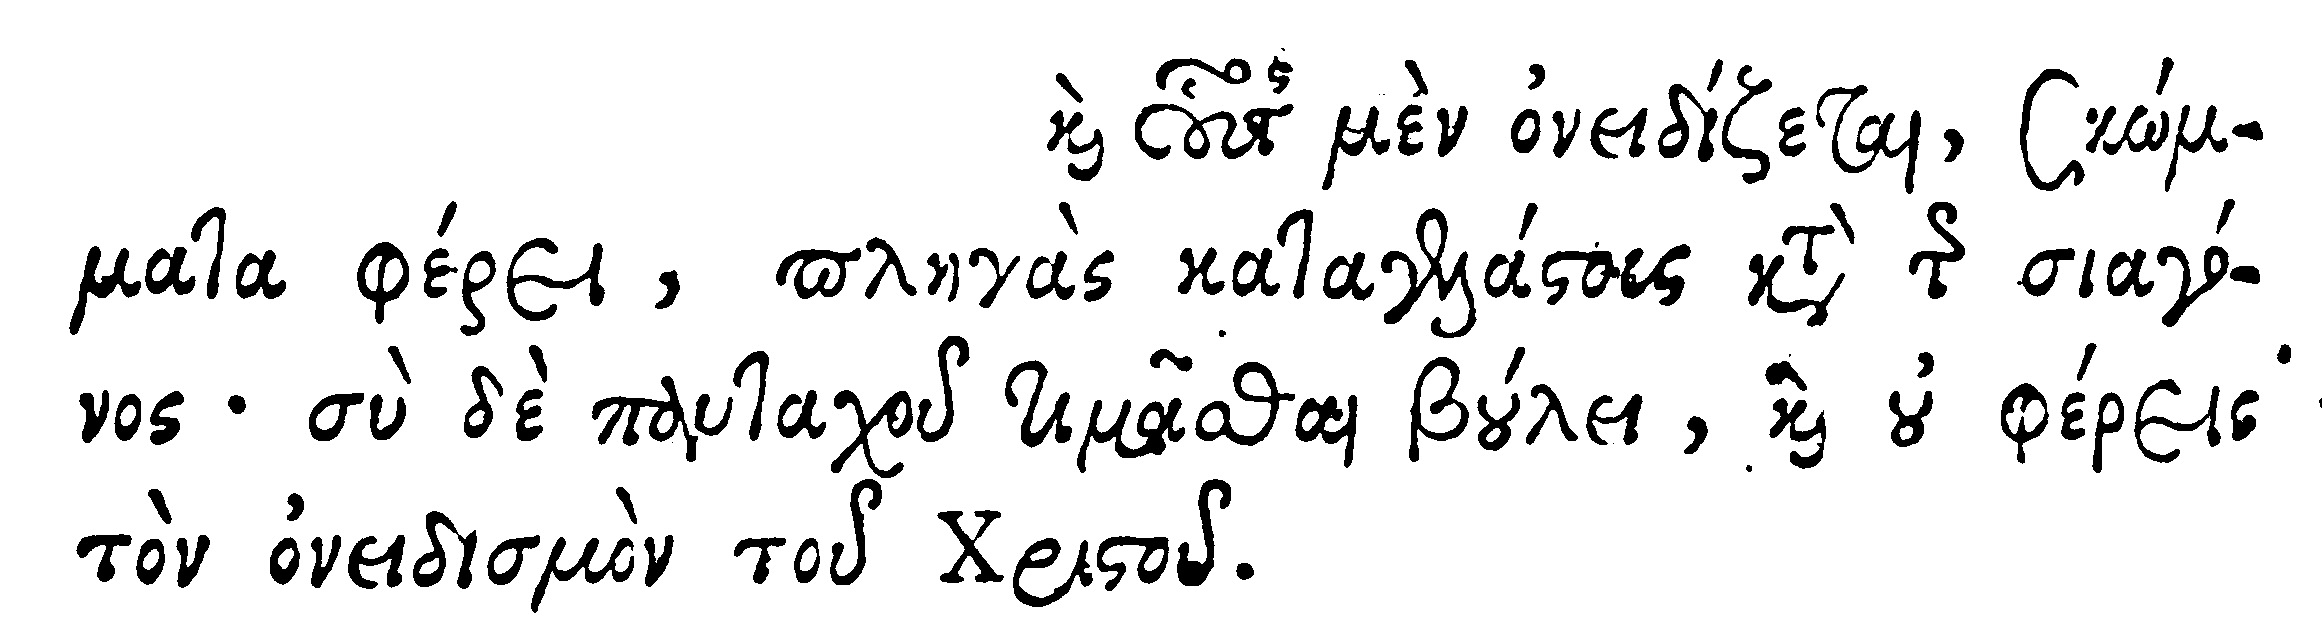 καὶ οὗτος μὲν ὀνειδίζεται, σκώμ-
ματα φέρει, πληγὰς καταγελάστους κατὰ τῆς σιαγό-
νος· σὺ δὲ πανταχοῦ τιμᾶσθαι βούλει, καὶ οὐ φέρεις
τὸν ὀνειδισμὸν τοῦ Χριστοῦ.